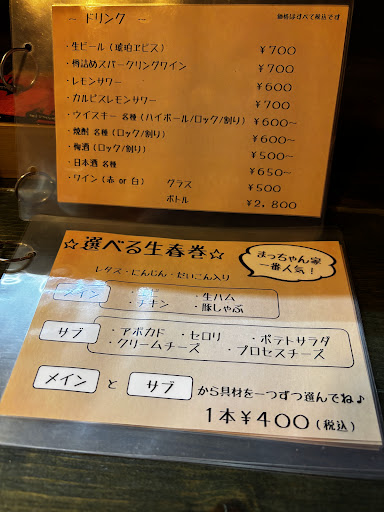 ― ドリンク ―
価格はすべて税込です
・生ビール（琥珀ヱビス） ¥700
・樽詰めスパークリングワイン ¥700
・レモンサワー ¥600
・カルピスレモンサワー ¥700
・ウイスキー 各種（ハイボール/ロック/割り） ¥600～
・焼酎 各種（ロック/割り） ¥600～
・梅酒（ロック/割り） ¥500～
・日本酒 各種 ¥650～
・ワイン（赤 or 白） グラス ¥500
ボトル ¥2,800
☆選べる生春巻☆
まっちゃん家
一番人気！
レタス・にんじん・だいこん入り
メイン
・生ハム
・チキン ・豚しゃぶ
サブ
・アボカド ・セロリ ・ポテトサラダ
・クリームチーズ ・プロセスチーズ
メイン と サブ から具材を一つずつ選んでね♪
1本¥400（税込）